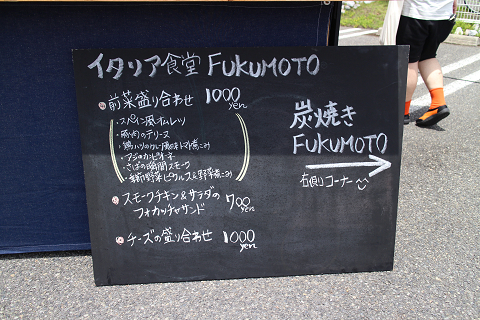 イタリア食堂 FUKUMOTO
前菜盛り合わせ 1000yen
・スペイン風オムレツ
・豚肉のテリーヌ
・鶏ハツのカレー風味トマト煮こみ
・アジのカピオーネ
・さばの瞬間スモーク
ピクルス&野菜煮こみ
スモークチキン&サラダの
フォカッチャサンド 700yen
チーズの盛り合わせ 1000yen
炭焼き
FUKUMOTO
右側コーナー